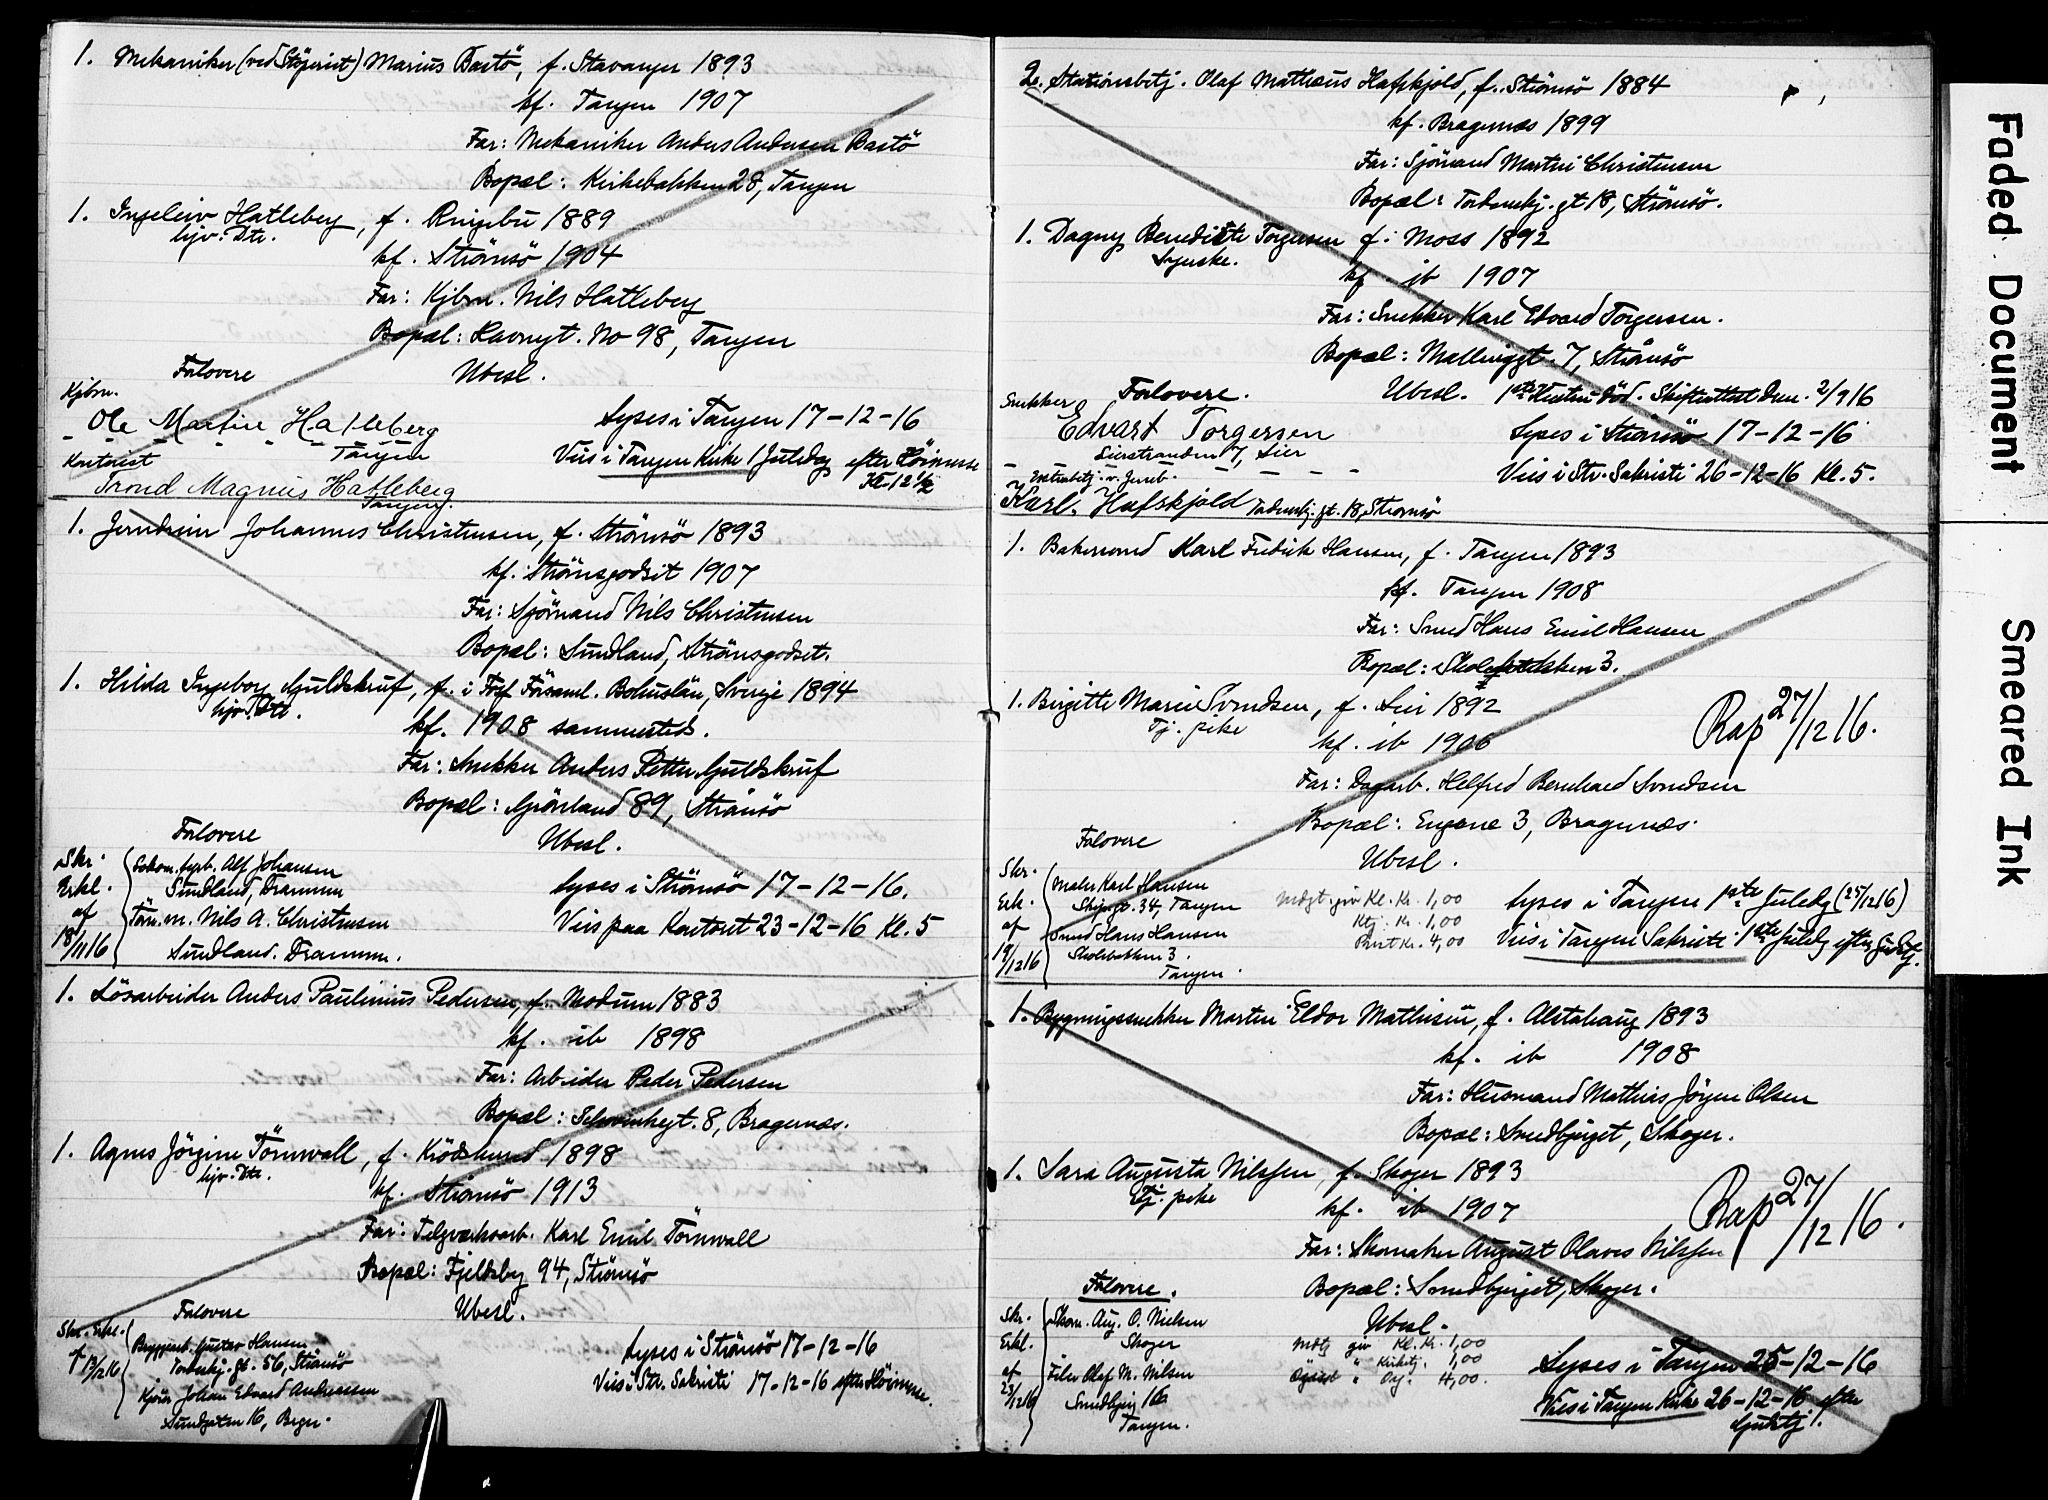 1. Mekaniker (ved Stöperiet) Marius Bastö, f. Stavanger 1893
kf. Tangen 1907
Far: Mekaniker Anders Andersen Bastö
Bopæl: Kirkebakken 28, Tangen
1. Ingeleiv Hatleberg, f. Ringebu 1889
hjv. Dtr.
kf. Strömsö 1904
Far: Kjbm. Nils Hatleberg
Bopæl: Havnegt. No 98, Tangen
Forlovere Ubesl.
Kjbm.
Ole Martin Hatleberg Lyses i Tangen 17-12-16
Tangen
Kontorist Vies i Tangen Kirke 1 Juledag efter Höimesse
Kl. 12 1/2
Trond Magnus Hatleberg
Tangen.
1. Jerndreier Johannes Christensen, f. Strömsö 1893
kf. Strömsgodset 1907
Far: Sjömand Nils Christensen
Bopæl: Sundland, Strömsgodset.
1. Hilda Ingeborg Guldskruf, f. i Församl. Bohuslän, Sverige 1894
hjv. Dtr.
kf. 1908 sammesteds.
Far: Snekker Anders Petter Guldskruf
Bopæl: Grönland 89, Strömsö
Forlovere Ubesl.
Skr. Erkl. af 18/11 16
Lokom. fyrb. Alf Johansen
Sundland, Drammen Lyses i Strömsö 17-12-16.
Töm. m. Nils A. Christensen Vies paa Kontoret 23-12-16 Kl. 5
Sundland. Drammen.
1. Lösarbeider Anders Paulinius Pedersen, f. Modum 1883
kf. ib 1898
Far: Arbeider Peder Pedersen
Bopæl: Schwenckegt. 8, Bragernæs.
1. Agnes Jörgine Törnwall, f. Krödsherred 1898
hjv. Dtr.
kf. Strömsö 1913
Far: Telgverksarb. Karl Emil Törnwall
Bopæl: Fjeldsby 94, Strömsö
Forlovere Ubesl.
Skr. Erkl. af 13/12 16
Bryggearb. Gustav Hansen
Tordenskj. gt. 56, Strömsö Lyses i Strömsö 17-12-16
Kjörer Johan Edvard Andreassen Vies i Str. Sakristi 17-12-16 efter Höimesse.
Sundgaten 16, Brgn.
2. Stationsbetj. Olaf Mathæus Hafskjold, f. Strömsö 1884
kf. Bragernæs 1899
Far: Sjömand Martin Christensen
Bopæl: Tordenskj. gt 18, Strömsö.
1. Dagny Benedicte Torgersen f. Moss 1892
Syerske.
kf. ib 1907
Far: Snekker Karl Edvard Torgersen.
Bopæl: Mællinggt. 7, Strömsö
Forlovere. Ubesl. 1ste Hustru död. Skifteattest Dmn. 2/9 16
Snekker
Edvart Torgersen Lyses i Strömsö 17-12-16
Lierstranden 7, Lier
Vies i Str. Sakristi 26-12-16 Kl. 5.
Extrabetj. v. Jernb.
Karl. Hafskjold Tordenskj. gt. 18, Strömsö
1. Bakersvend Karl Fredrik Hansen, f. Tangen 1893
kf. Tangen 1908
Far: Smed Hans Emil Hansen
Bopæl: Skolebakken 3.
1. Birgitte Marie Svendsen, f. Lier 1892
Tj. pike
kf. ib 1906
Rap 27/12 16.
Far: Dagarb. Helfred Bernhard Svendsen
Bopæl: Engene 3, Bragernæs.
Forlovere Ubesl.
Skr. Erk. af 19/12 16
Maler Karl Hansen
Skipsgt. 34, Tangen
Smed Hans Hansen
Skolebakken 3
Tangen.
Mdgt. giv Kl. Kr. 1,00
Ktj. Kr. 1,00
Prest Kr. 4,00
Lyses i Tangen 1ste Juledg (25/12 16)
Vies i Tangen Sakristi 1ste Juledg efter Gudstj.
1. Bygningssnekker Martin Eldor Mathisen, f. Alstahaug 1893
kf. ib 1908
Far: Husmand Mathias Jörgen Olsen
Bopæl: Smedbjerget, Skoger.
1. Sara Augusta Nilssen, f. Skoger 1893
Tj. pike
kf. ib 1907
Rap 27/12 16.
Far: Skomaker August Olaves Nilssen
Bopæl: Smedbjerget, Skoger.
Forlovere. Ubesl.
Skr. Erkl. af 23/12 16
Skom. Aug. O. Nielsen
Skoger
Filer Olaf M. Nilsen
Smedbjerg 16
Tangen.
Mdtg giv Kl. Kr. 1,00
" Kirketj. 1,00
" Org. 4,00.
Lyses i Tangen 25-12-16
Vies i Tangen Kirke 26-12-16 efter
Gudstj.
Faded Document
Smeared Ink